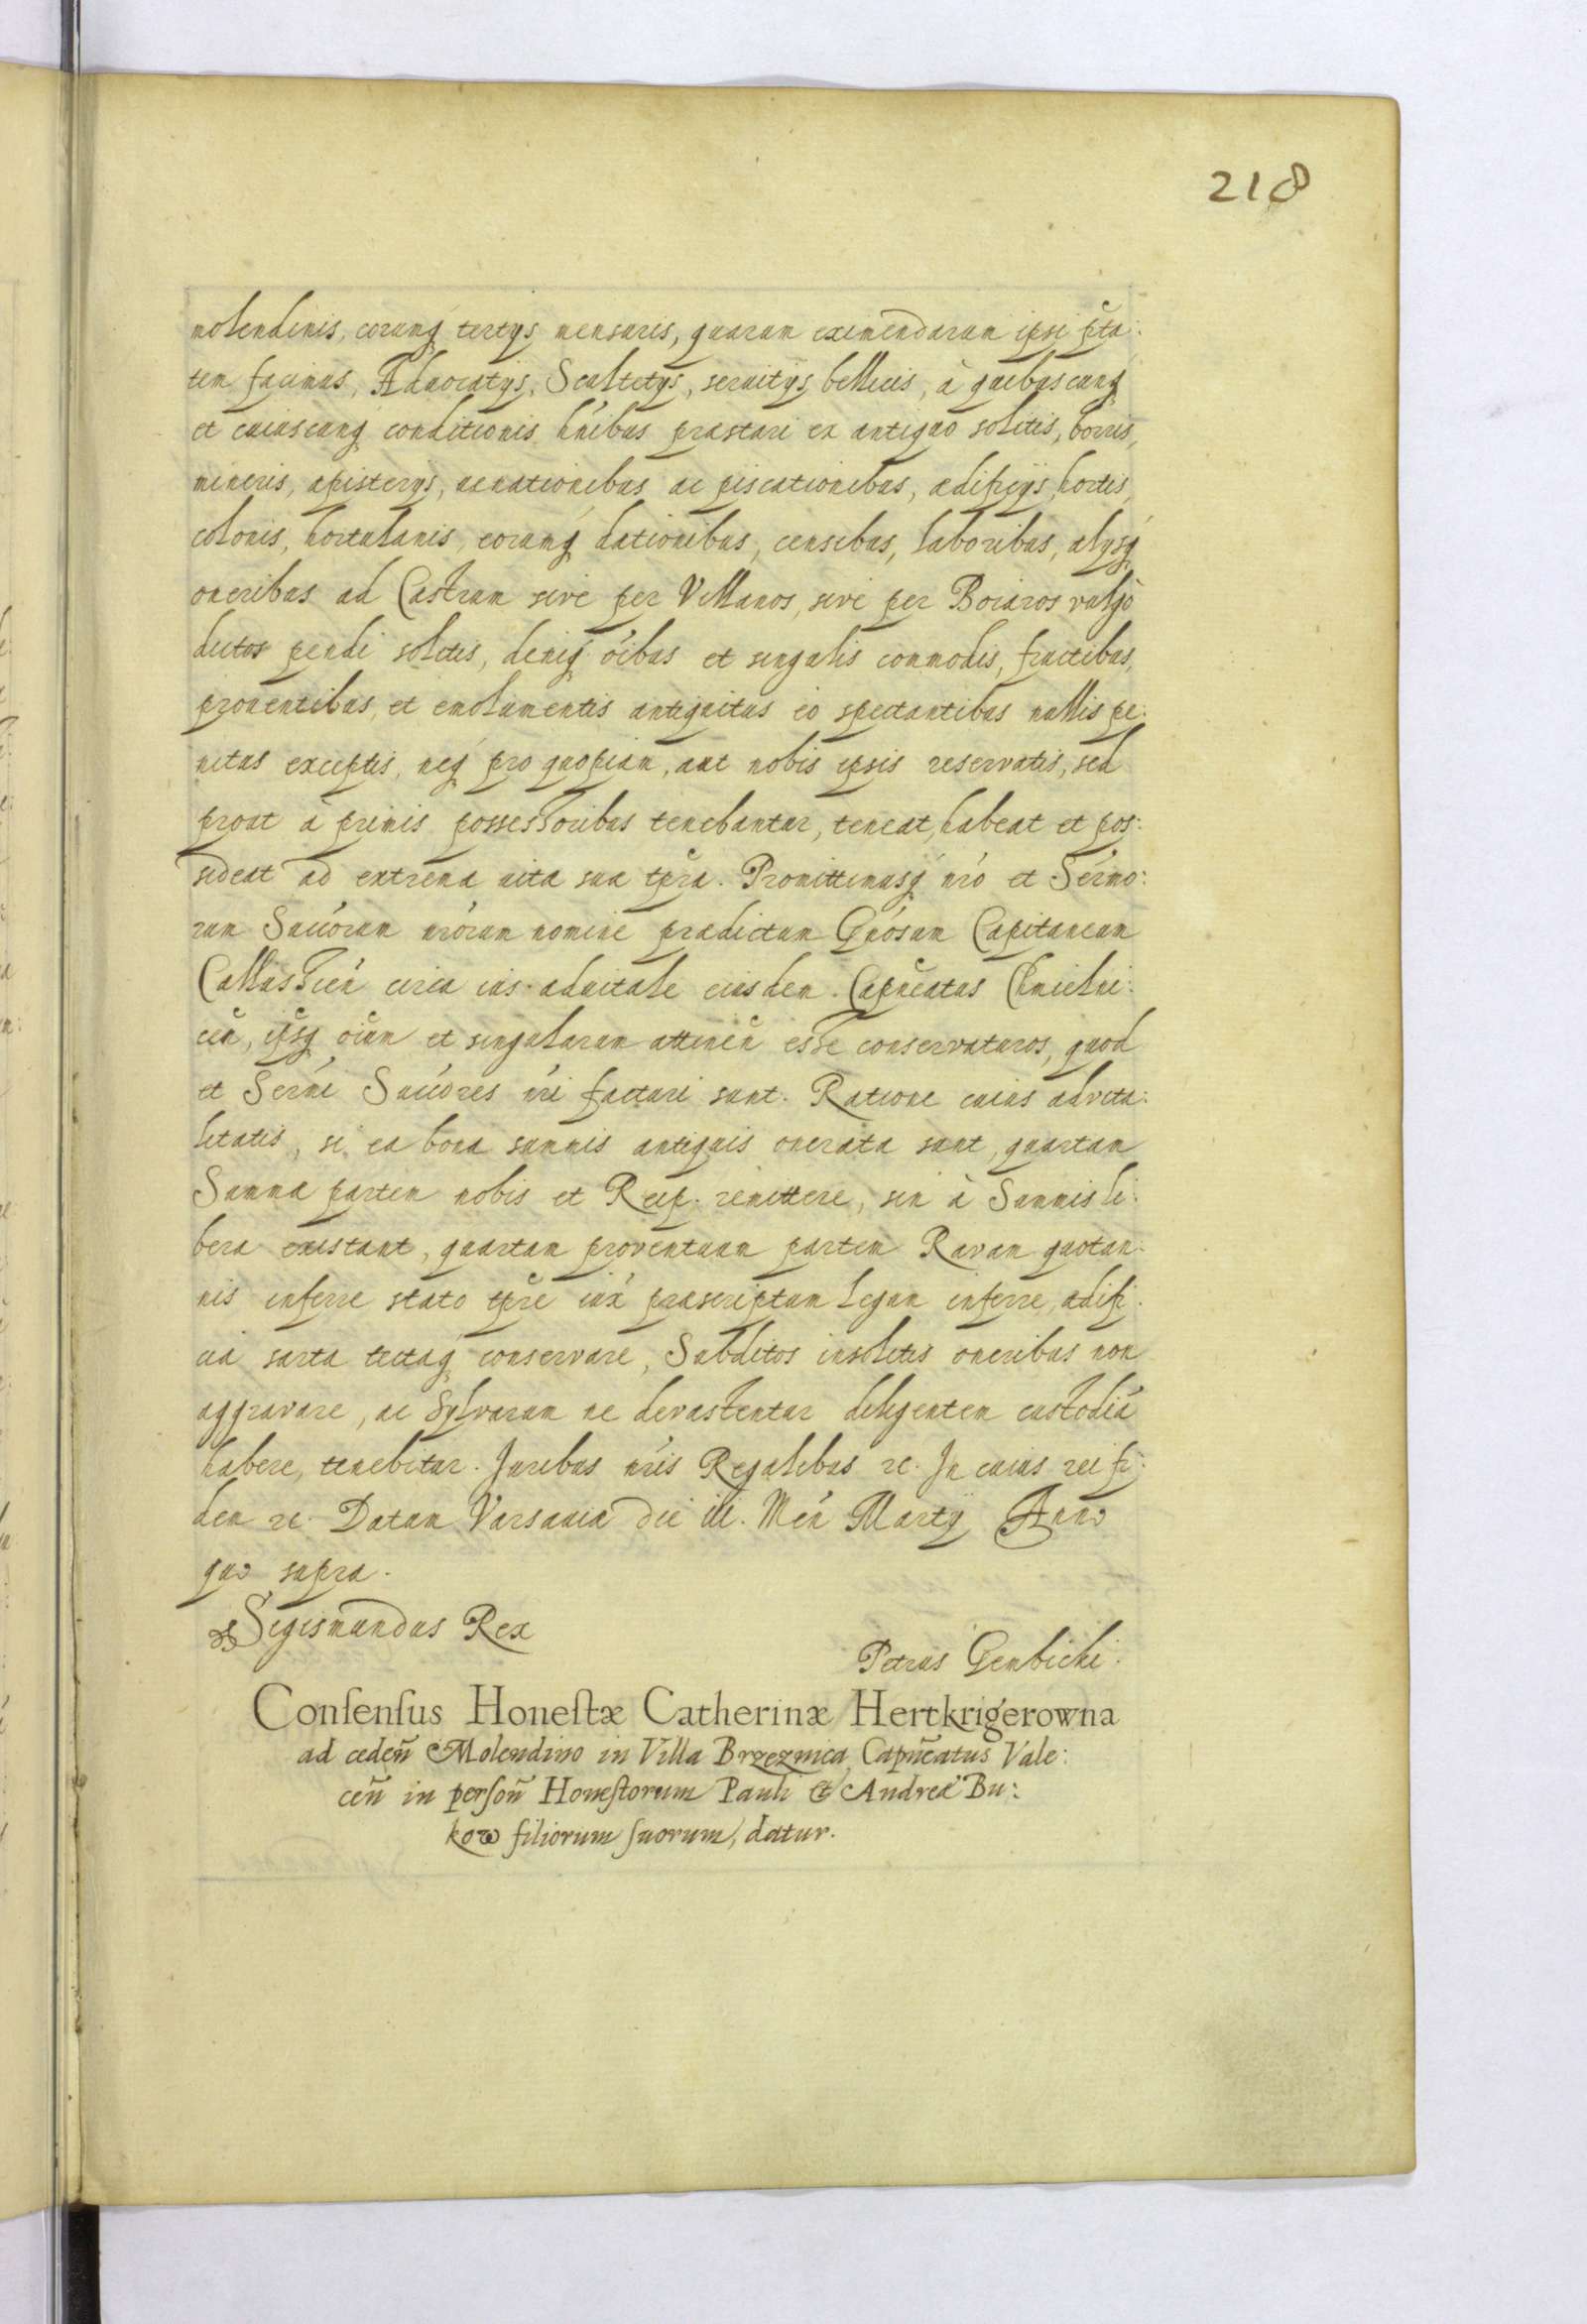 218
molendinis, eorumq́ tertys mensuris, quarum eximendarum ipsi p̃ta:
tem facimus, Advocatijs, Scultetys, seruitijs bellicis, à quibuscunq́
et cuiuscunq́ conditionis hńibus præstari ex antiquo solitis, borris,
mineris, apisterys, uenationibus ac piscationibus, ædificijs, hortis,
colonis, hortulanis, eorumq́ dationibus, censibus, laboribus, alysq́
oneribus ad Castrum sive per Villanos, sive per Boiaros vulgò
dictos pendi solitis, deniq́ óibus et singulis commodis, fructibus,
prouentibus, et emolumentis antiquitus eo spectantibus nullis pe:
nitus exceptis, neq́ pro quopiam, aut nobis ipsis reservatis, sed
prout à primis possessoribus tenebantur, teneat, habeat et pos:
sideat ad extrema uitæ suæ tp̃ra. Promittimusq́ nŕo et Seŕmo:
rum Succorum nŕorum nomine prædictum Gńosum Capitaneum
Callussien̄ circa ius aduitale eiusdem Capn̄eatus Chmielni:
cen̄, ip̃sq́ oiūm et singularum attinen̄ esse conservaturos, quod
et Serńi Succóres nŕi facturi sunt. Ratione cuius advita:
litatis, si ea bona summis antiquis onerata sunt, quartam
Summæ partem nobis et Reip. remittere, sin à Summis li:
bera existant, quartam proventuum partem Ravam quotan:
nis inferre stato tp̃re iux́ præscriptum legum inferre, ædifi:
cia sarta tectaq́ conservare, Subditos insolitis oneribus non
aggravare, ac Sylvarum ne devastentur diligentem custodiā
habere, tenebitur. Juribus nŕis Regalibus ꝛc. In cuius rei fi:
dem ꝛc. Datum Varsauiæ die iii. Men̄ Martij Anno
quo supra.
Sigismundus Rex
Petrus Gembicki.
Conſenſus Honeſtæ Catherinæ Hertkrigerowna
ad ceden̄ Molendino in Villa Brzeznica, Capn̄eatus Vale:
cen̄ in perſon̄ Honeſtorum Pauli & Andreæ Bu:
kow filiorum ſuorum, datur.